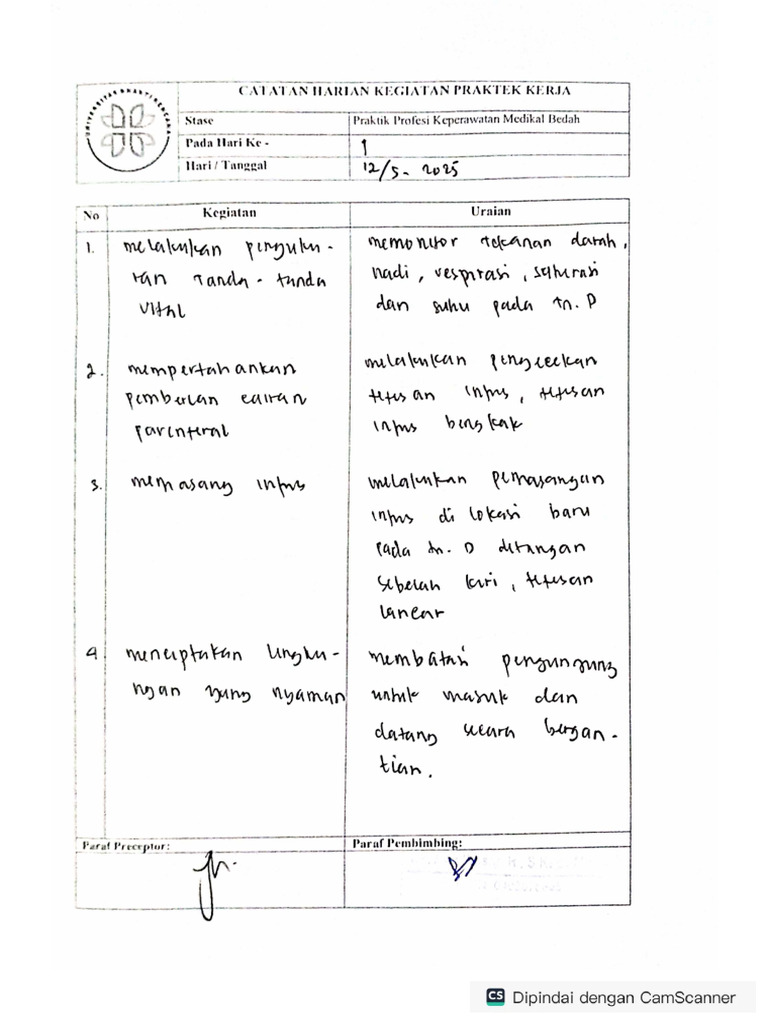 CATATAN HARIAN KEGIATAN PRAKTEK KERJA
Stase Praktik Profesi Keperawatan Medikal Bedah
Pada Hari Ke - 1
Hari / Tanggal 12/5 - 2025
No Kegiatan Uraian
1. melakukan penguku-
ran tanda-tanda
vital
memonitor tekanan darah,
nadi, respirasi, saturasi
dan suhu pada tn. D
2. mempertahankan
pemberian cairan
parenteral
melakukan pengecekan
tetesan infus, tetesan
infus bengkak
3. memasang infus
melakukan pemasangan
infus di lokasi baru
pada tn. D ditangan
sebelah kiri, tetesan
lancar
4. menciptakan lingku-
ngan yang nyaman
membatasi pengunjung
untuk masuk dan
datang secara bergan-
tian.
Paraf Preceptor: Paraf Pembimbing:
CS Dipindai dengan CamScanner